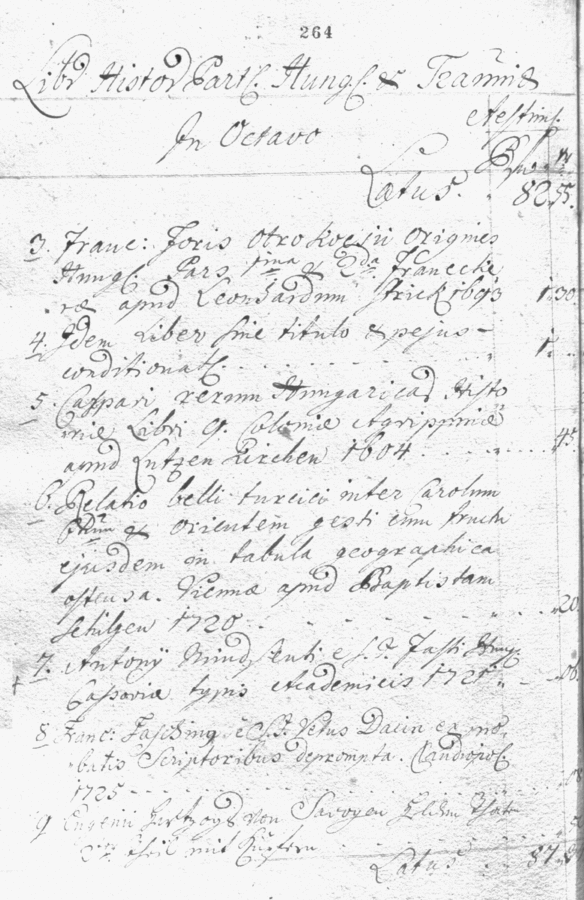 264
Libri Histor Part. Hung. & Tranniæ
In Octavo
Æstim.
Rfno xr
Latus. 82.55.
3. Franc: Foris Otrokocsii Origines
Hung. Pars 1ma & 2da Franecke
ræ apud Leonhardum Strick 1693 1.30
4. Idem Liber sine titulo & pejus-
conditionat. 1.
5. Caspari rerum Hungaricar Histo
riæ Libri 9. Coloniæ Agrippinæ
apud Lutzen Kirchen 1604 45
6. Relatio belli turcici inter Carolum
6tum & Orientem gesti cum fructu
ejusdem in tabula geographica
ostensa. Viennæ apud Baptistam
Schilgen 1720 20
7. Antonÿ Mindszenti e S.J. Fasti Hung.
Cassoviæ typis Academicis 1721
8. Franc: Fasching e S.J. Vetus Dacia ex pro-
batis Scriptoribus deprompta. Claudiopol.
1725
9 Eugenii Hertzogs von Savoyen Helden That
2ter theil mit Kupfern
Latus 87.